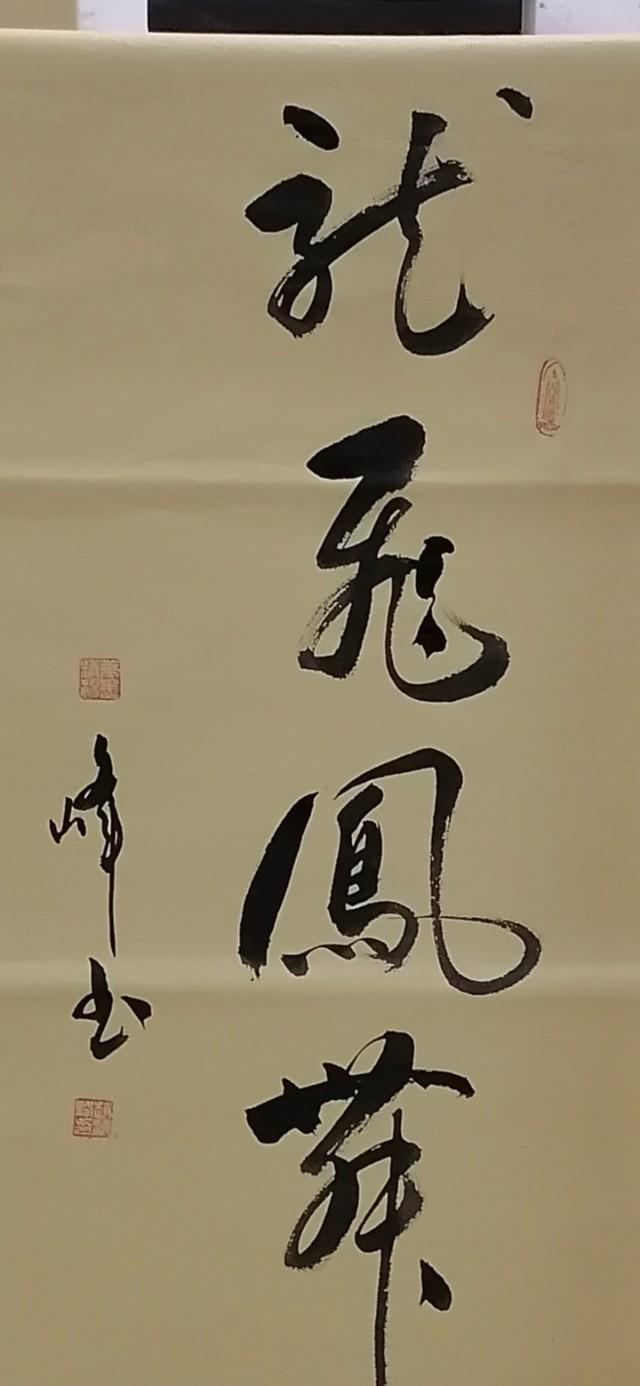 龍飛鳳舞
峰书